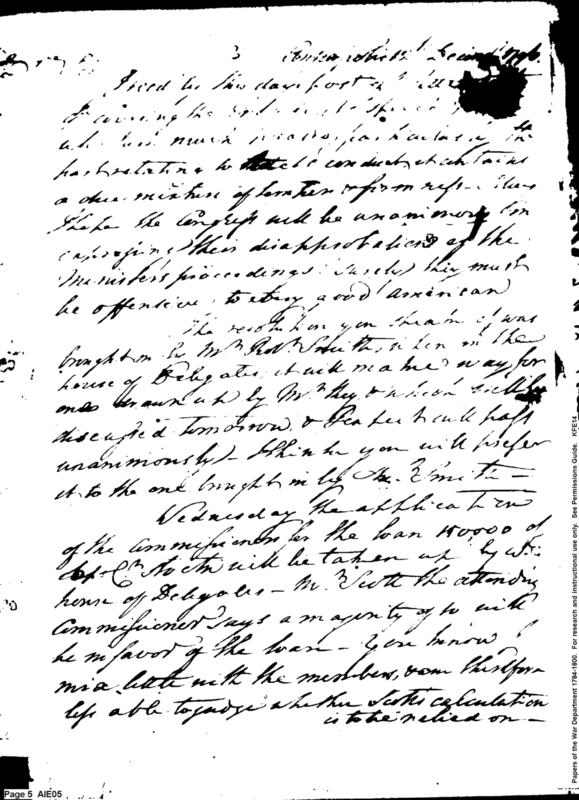 3 Decem<sup>r</sup> 1796
I rec<sup>d</sup> by this days post
covering the
much
part relating to conduct it contains
a due mixture of & firmness
I hope the Congress will be unanimous in
expressing their disapprobation of the
Ministers proceedings. Surely they must
be offensive to every good American
The resolution you it was
brought in by M<sup>r</sup> Rob<sup>t</sup> Smith, when in the
house of Delegates it will make way for
one drawn up by M<sup>r</sup> Key & which will be
discussed tomorrow & I expect will pass
unanimously - I think you will prefer
it to the one brought in by M<sup>r</sup> Smith -
Wednesday the application
of the Commissioners for the loan 150,000 of
will be taken up by
house of Delegates - M<sup>r</sup> Scott the attending
Commissioner says a majority of will
be in favor of the loan - You know I
mix little with the members, & am therefore
less able to judge whether Scotts calculation
is to be relied on -
Page 5 AIE05
Papers of the War Department 1784-1800. For research and instructional use only. See Permissions Guide. KFE14